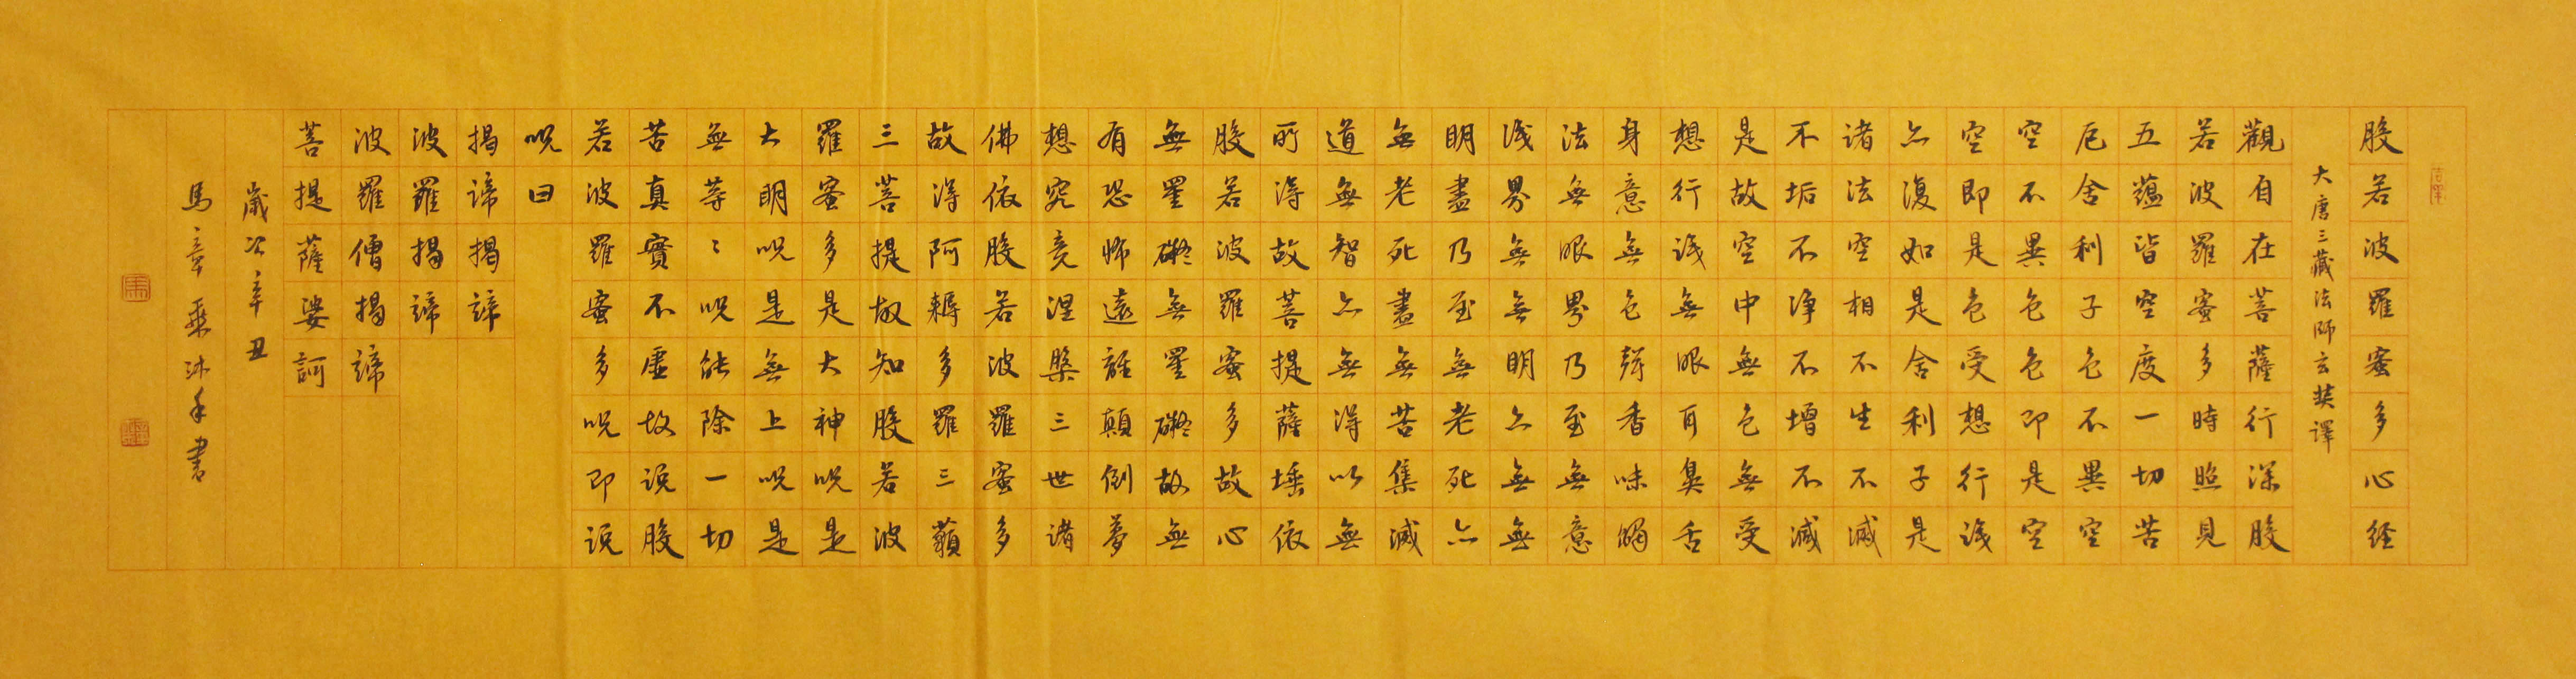 般若波羅蜜多心経
大唐三藏法師玄奘譯
觀自在菩薩行深般
若波羅蜜多時照見
五蘊皆空度一切苦
厄舍利子色不異空
空不異色色即是空
空即是色受想行識
亦復如是舍利子是
諸法空相不生不滅
不垢不淨不增不減
是故空中無色無受
想行識無眼耳鼻舌
身意無色聲香味觸
法無眼界乃至無意
識界無無明亦無無
明盡乃至無老死亦
無老死盡無苦集滅
道無智亦無得以無
所得故菩提薩埵依
般若波羅蜜多故心
無罣礙無罣礙故無
有恐怖遠離顛倒夢
想究竟涅槃三世諸
佛依般若波羅蜜多
故得阿耨多羅三藐
三菩提故知般若波
羅蜜多是大神呪是
大明呪是無上呪是
無等〻呪能除一切
苦真實不虛故說般
若波羅蜜多呪即說
呪曰
揭諦揭諦
波羅揭諦
波羅僧揭諦
菩提薩婆訶
歲次辛丑
馬章乘沐手書
馬